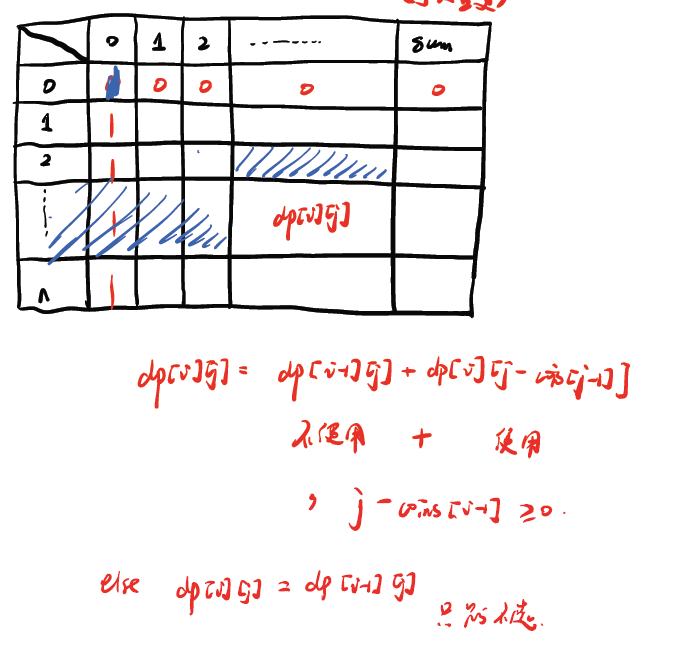 0 1 2 ...... sum
0 0 0 0 0
1 1
2 1
1 dp[i][j]
n 1
dp[i][j] = dp[i-1][j] + dp[i][j-coins[j-1]]
不使用 + 使用
, j - coins[i-1] ≥ 0.
else dp[i][j] = dp[i-1][j]
只能不选.